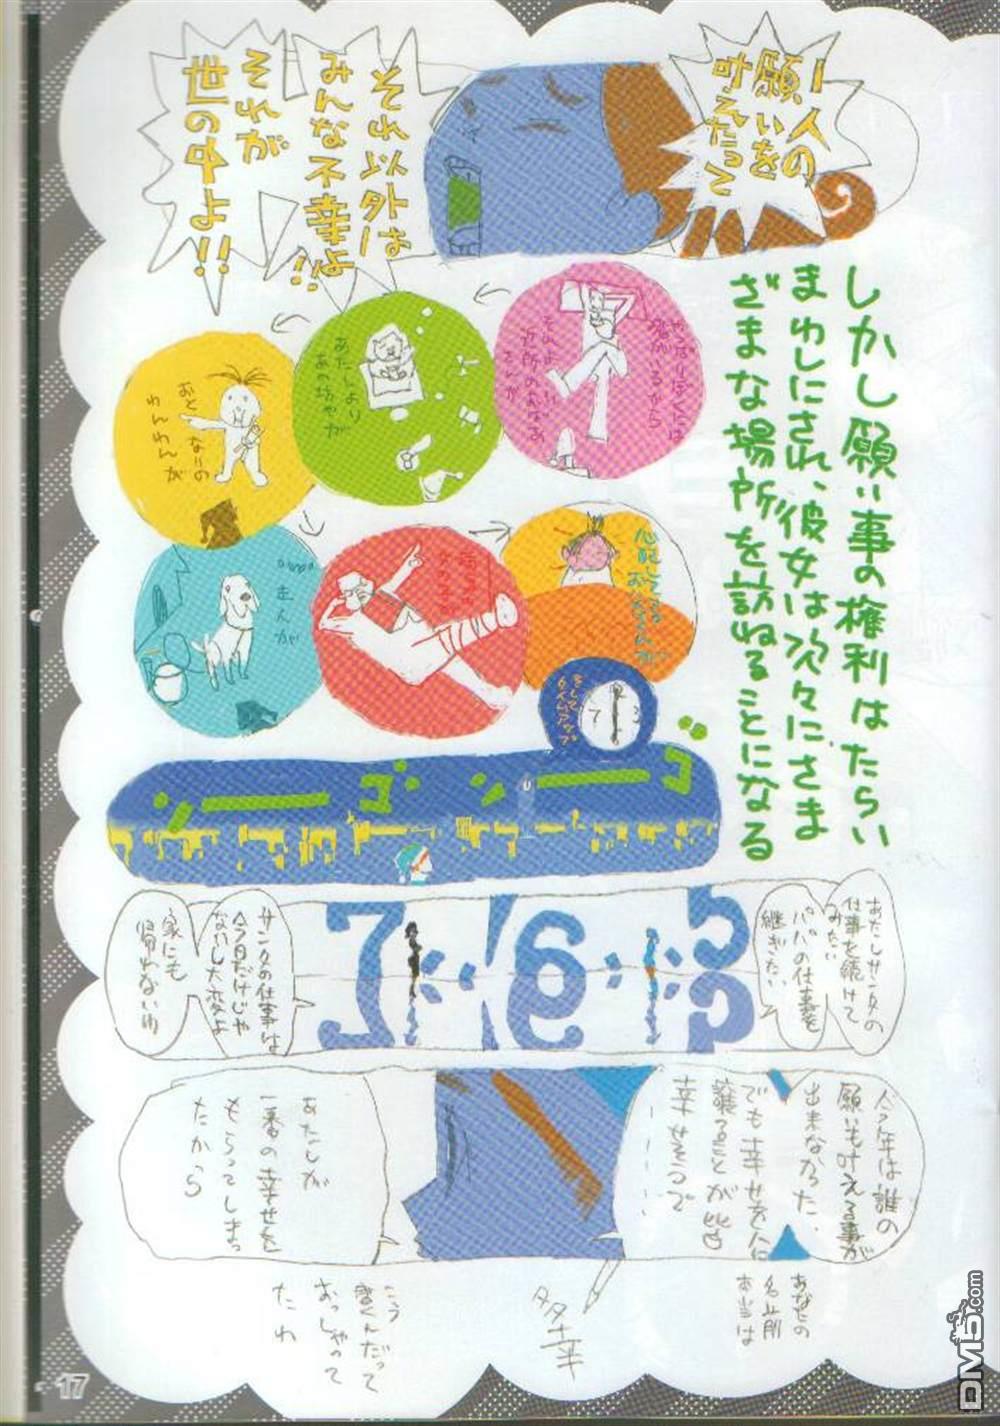 一人の
願いを
叶えたって
それ以外は
みんな不幸よ!!
それが
世の中よ!!
しかし願い事の権利はたらい
まわしにされ、彼女は次々にさま
ざまな場所を訪ねることになる
やっぱりぼくには
君がいるから
それより
近所のおばあ
さんが
あたしより
あの坊やが
おとなりの
わんわんが
主人が
心配してる
お父さんが
そして
タイムアップ
ゴーン
ゴーン
7
6
5
あたしサンタの
仕事を続けて
みたい
パパの仕事を
継ぎたい
サンタの仕事は
今日だけじゃ
ないし大変よ
家にも
帰れないわ
今年は誰の
願いも叶える事が
出来なかった、
でも幸せを人に
譲ることが皆
幸せそうで
あたしが
一番の幸せを
もらってしまっ
たから
あなたの
名前
本当は
多幸
こう
書くんだって
おっしゃって
たわ
17
DM5.com